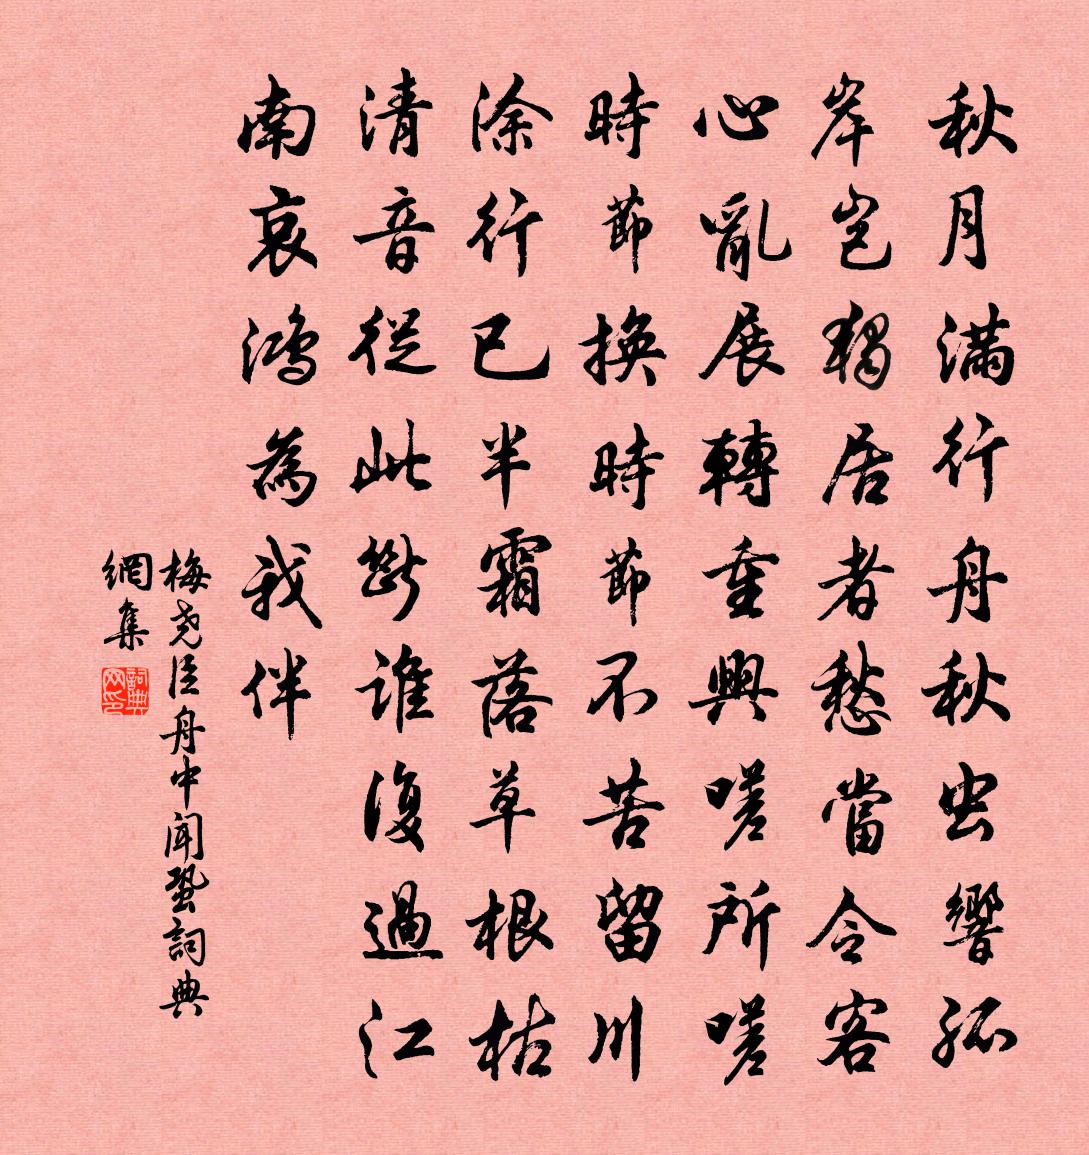 秋月滿行舟秋虫響孤
岸豈獨居者愁當令客
心亂展轉重興嗟所嗟
時節換時節不苦留川
涂行已半霜落草根枯
清音從此斷誰復過江
南哀鴻為我伴
梅尧臣舟中闻蛩詞典
網集
詞典
网印